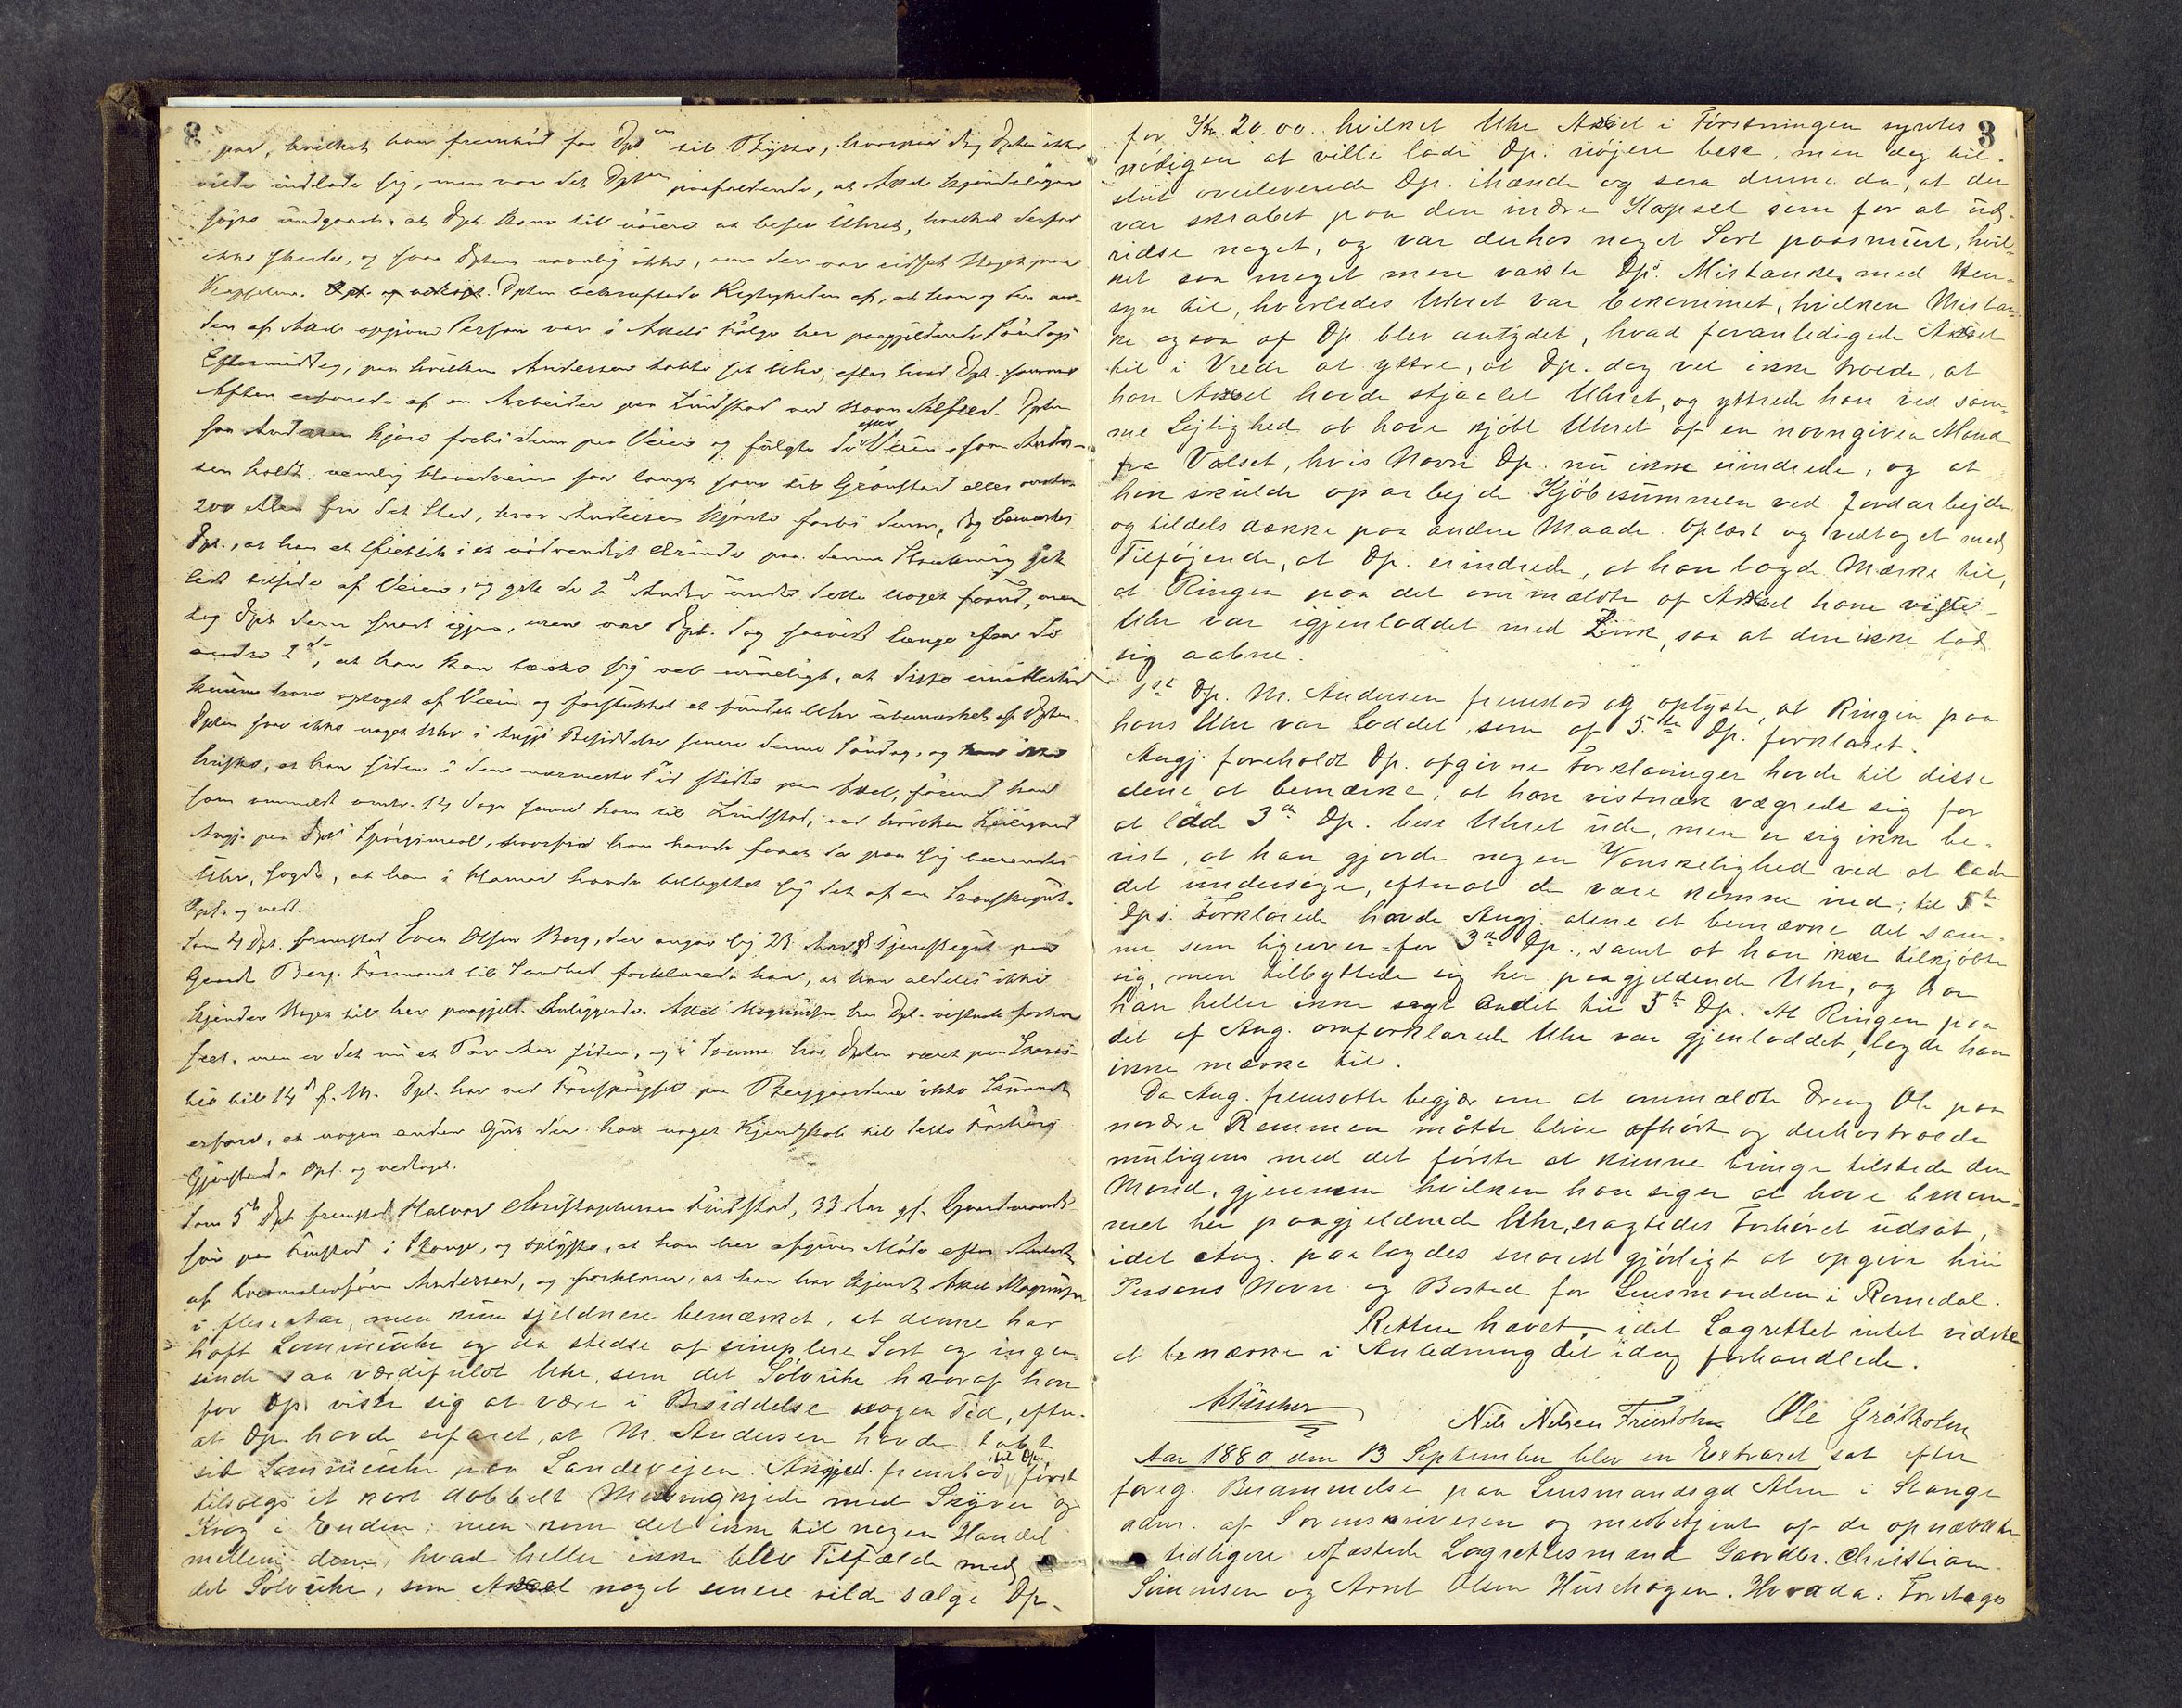 paa, hvilket han frembød for Dpten til Bytte, hvorpaa dog Dpten ikke
vilde indlade sig, men var det Dpten paafaldende, at Axel kjendeligen
søgte undgaaet, at Dpt. kom til nöiere at besee Uhret, hvilket derfor
ikke skede, og saa Dpten navnlig ikke, om der var ridset Noget paa
Kapselen. Dpten bekræftede Rigtigheden af, at han og den an-
den af Axel opgivne Person var i Axels Følge her paagjældende Søndags
Eftermiddag, paa hvilken Andersen tabte sit Uhr, efter hvad Dpt. samme
Aften erfarede af en Arbeider paa Lindstad ved Navn Alfred. Dpten
saa Andersen kjøre forbi dem paa Veien og fulgte de efter Veien, som Ander-
sen holdt, nemlig Hovedveien saa langt som til Grönstad eller omtr.
200 Alen fra det Sted, hvor Andersen kjørte forbi dem, dog bemærker
Dpt., at han et Øieblik i et nødvendigt Ærinde paa denne Strækning gik
lidt tilside af Veien, og gik de 2de Andre under dette noget forud, men
tog Dpt. dem snart igjen, men var Dpt. dog saavidt længe fra de
andre 2de, at han kan tænke sig vel muligt, at disse imidlertid
kunne have optaget af Veien og forstukket et fundet Uhr ubemærket af Dpten.
Dpten saa ikke noget Uhr i deres Besiddelse senere denne Søndag, og
hviske, at han siden i den nærmeste Tid stødte paa Axel, førend han
som anmeldt omtr. 14 Dage senere kom til Lindstad, ved hvilken Leilighed
Angj. paa Dpts Spørgsmaal, hvorfra han havde faaet det paa sig bærende
Uhr, sagde, at han i Hamar havde tilbyttet sig det af en Svenskegut.
Opl. og vedt.
Som 4 Dpt. fremstod Even Olsen Berg, der angav sig 23 Aar, Tjenestegut paa
Gaard Berg. Formanet til Sandhed forklarede han, at han aldeles ikke
kjender Noget til her paagjeld. Anliggende. Axel Magnusen har Dpt. vistnok forhen
seet, men er det nu et Par Aar siden, og i Sommer har Dpten været paa
til 14de f. M. Dpt. har ved Forespørgsel paa Berggaardene ikke kunnet
erfare, at nogen anden Gut der har noget Kjendskab til dette Forhørs
Gjenstand. Opl. og vedtaget.
Som 5te Dpt fremstod Halvor Christophersen Lindstad, 33 Aar gl. Gaardmands-
søn paa Linstad i Stange, og oplyste, at han her afgiver Møde efter Anmodn.
af Andersen, og forklarer, at han har kjendt Axel Magnusen
i flere Aar, men kun sjeldnere bemærket, at denne har
haft Lommeuhr og da stedse af simplere Sort og ingen-
sinde saa værdifuldt Uhr, som det Sölvuhr hvoraf han
for Dp. viste sig at være i Besiddelse nogen Tid, efter-
at Dp. havde erfaret, at M. Andersen havde tabt
sit Lommeuhr paa Landevejen. Angjeld. frembød til Dp. först
tilsalgs et kort dobbelt Messingkjede med Skyver og
Krog i Enden; men kom det ikke til nogen Handel
mellem dem, hvad heller ikke blev Tilfælde med
det Sölvuhr, som Axel noget senere vilde sælge Dp.
3
for Kr. 20.00. hvilket Uhr Axel i Förstningen syntes
nödigen at ville lade Dp. nöjere bese, men dog til-
slut overleverede Dp. ihænde og saa denne da, at der
var skrabet paa den indre Kapsel som for at ud-
ridse noget, og var derhos noget Sort paasmurt, hvil-
ket saa meget mere vakte Dp.s Mistanke med Hen-
syn til, hvorledes Uhret var bekommet, hvilken Mistan-
ke ogsaa af Dp. blev antydet, hvad foranledigede Axel
til i Vrede at yttre, at Dp. dog vel ikke troede, at
han Axel havde stjaalet Uhret, og yttrede han ved sam-
me Lejlighed at have kjöbt Uhret af en navngiven Mand
fra Valset, hvis Navn Dp. nu ikke erindrede, og at
han skulde oparbejde Kjöbesummen ved Jordarbejde
og tildels dække paa anden Maade. Oplæst og vedtaget med
Tilföjende, at Dp. erindrede, at han lagde Mærke til,
at Ringen paa det ommældte af Axel ham viste
Uhr var igjenloddet med Zink, saa at den ikke lod
sig aabne.
1ste Dp. M. Andersen fremstod og oplyste, at Ringen paa
hans Uhr var loddet, som af 5te Dp. forklaret.
Angj. foreholdt Dp. afgivne Forklaringer havde til disse
alene at bemærke, at han vistnok vægrede sig for
at lade 3die Dp. bese Uhret ude, men er sig ikke be-
vist, at han gjorde nogen Vanskelighed ved at lade
det undersöge, efterat de vare komne ind; til 5te
Dp.s Forklarede havde Angj. alene at bemærke det sam-
me som ligeover for 3die Dp., samt at han ikke tilkjöbte
sig, men tilbyttede sig her paagjeldende Uhr, og har
han heller ikke sagt andet til 5te Dp. At Ringen paa
det af Ang. omforklarede Uhr var gjenloddet, lagde han
ikke mærke til.
Da Ang. fremsatte begjær om at ommældte Dreng Ole paa
nordre Rommen måtte blive afhört og derhos troede
muligens med det förste at kunne bringe tilstede den
Mand, gjennem hvilken han siger at have bekom-
met her paagjeldende Uhr, eragtedes Forhöret udsat,
idet Ang. paalagdes snarest gjörligt at opgive hin
Persons Navn og Bosted for Lensmanden i Romedal.
Retten hævet, idet Lagrettet intet vidste
at bemærke i Anledning det idag forhandlede.
Nils Nilsen Ole Grötholm
Aar 1880 den 13 September blev en Extraret sat efter
foreg. Berammelse paa Lensmandsgd Alm i Stange
adm. af Sorenskriveren og medbetjent af de opnævnte
tidligere edfæstede Lagrettesmænd Gaardbr. Christian
Simensen og Arnt Olsen Husehagen. Hvorda: Foretages